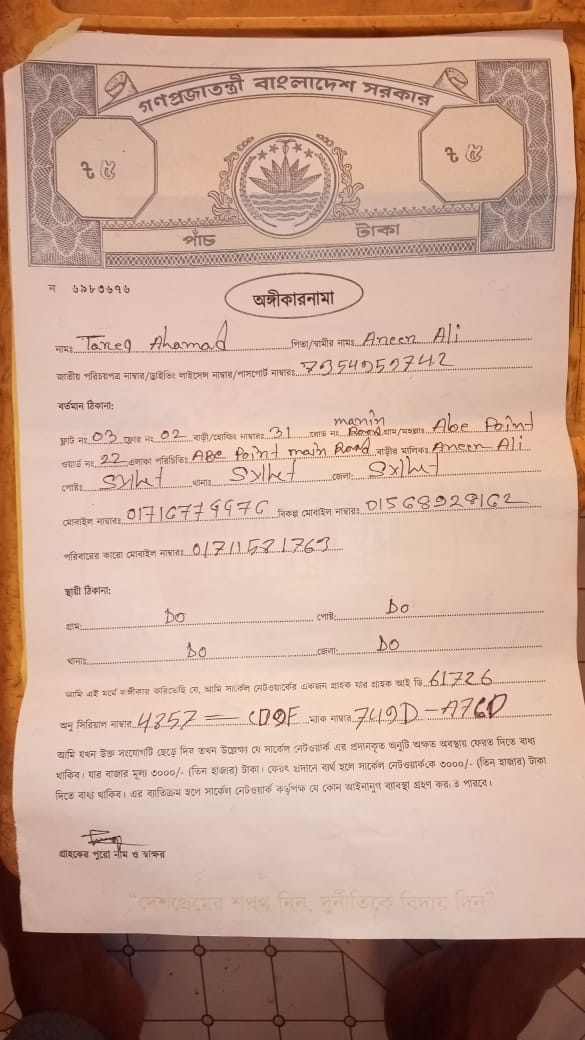 গণপ্রজাতন্ত্রী বাংলাদেশ সরকার
৳ ৫ ৳ ৫
পাঁচ টাকা
ন ৬৯৮৩৬৭৬
অঙ্গীকারনামা
নামঃ Tareq Ahamad পিতা/স্বামীর নামঃ Aneen Ali
জাতীয় পরিচয়পত্র নাম্বার/ড্রাইভিং লাইসেন্স নাম্বার/পাসপোর্ট নাম্বারঃ 7354959742
বর্তমান ঠিকানা:
ফ্লাট নং 03 ফ্লোর নং 02 বাড়ী/হোল্ডিং নাম্বারঃ 31 রোড নং Road গ্রাম/মহল্লাঃ Abe Point
ওয়ার্ড নং 22 এলাকা পরিচিতিঃ ABe Point main Road বাড়ীর মালিকঃ Aneen Ali
পোষ্টঃ Sylhet থানাঃ Sylhet জেলাঃ Sylhet
মোবাইল নাম্বারঃ বিকল্প মোবাইল নাম্বারঃ 01568928162
পরিবারের কারো মোবাইল নাম্বারঃ 01711581763
স্থায়ী ঠিকানা:
গ্রাম: Do পোষ্ট: Do
থানাঃ Do জেলা: Do
আমি এই মর্মে অঙ্গীকার করিতেছি যে, আমি সার্কেল নেটওয়ার্কের একজন গ্রাহক যার গ্রাহক আই ডি 61726
অনু সিরিয়াল নাম্বার 4857 = CD9F ম্যাক নাম্বার 749D-A76D
আমি যখন উক্ত সংযোগটি ছেড়ে দিব তখন উল্লেখ্য যে সার্কেল নেটওয়ার্ক এর প্রদানকৃত অনুটি অক্ষত অবস্থায় ফেরত দিতে বাধ্য
থাকিব। যার বাজার মূল্য ৩০০০/- (তিন হাজার) টাকা। ফেরৎ প্রদানে ব্যর্থ হলে সার্কেল নেটওয়ার্ককে ৩০০০/- (তিন হাজার) টাকা
দিতে বাধ্য থাকিব। এর ব্যতিক্রম হলে সার্কেল নেটওয়ার্ক কর্তৃপক্ষ যে কোন আইনানুগ ব্যবস্থা গ্রহণ করতে পারবে।
গ্রাহকের পুরো নাম ও স্বাক্ষর
"দেশপ্রেমের শপথ নিন, দুর্নীতিকে বিদায় দিন"